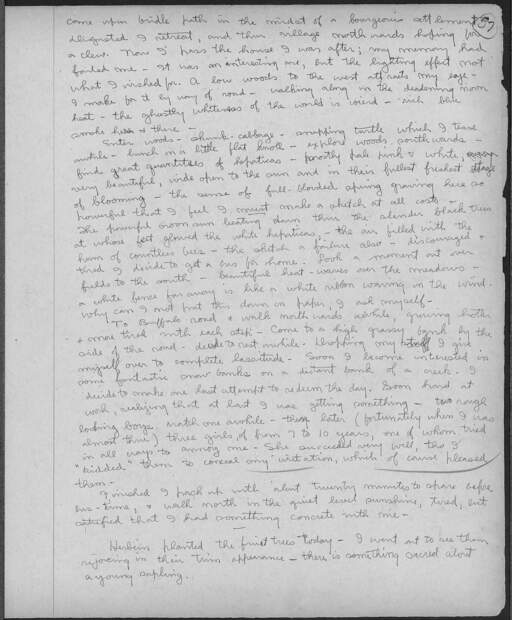 come upon bridle path in the midst of a bourgeois settlement
disgusted I retreat, and thru village northwards hoping for
a clew. Now I pass the house I was after; my memory had
fooled me - it was an interesting one, but the lighting effect not
what I wished for. A low woods to the west attracts my eye -
I make for it by way of road - walking along in the deadening noon
heat - the ghostly whiteness of the world is weird - such blue
smoke here & there -
Enter woods - skunk-cabbage - snapping turtle which I tease
awhile - lunch on a little flat knoll - explore woods, southwards -
find great quantities of hepaticas - mostly pale pink & white,
very beautiful, wide open to the sun and in their fullest freshest stage
of blooming - the sense of full-blooded spring growing here so
powerful that I feel I must make a sketch at all costs -
The powerful noon sun beating down thru the slender black trees
at whose feet glowed the white hepaticas, - the air filled with the
hum of countless bees - the sketch a failure also - discouraged &
tired I decide to get a bus for home. Took a moment out over
fields to the south - beautiful heat-waves over the meadows -
a white fence far away is like a white ribbon waving in the wind.
Why can I not put this down on paper, I ask myself -
To Buffalo road & walk northwards awhile, growing hotter
& more tired with each step - Come to a high grassy bank by the
side of the road - decide to rest awhile. Dropping my stuff I give
myself over to complete lassitude - Soon I become interested in
some fantastic snow banks on a distant bank of a creek. I
decide to make one last attempt to redeem the day. Soon hard at
work, realizing that at last I was getting something - two rough
looking boys watch me awhile - then later (fortunately when I was
almost thru) three girls, of from 7 to 10 years, one of whom tried
in all ways to annoy me - She succeeded very well, tho I
"kidded" them to conceal my irritation, which of course pleased
them -
Finished I pack up with about twenty minutes to spare before
bus-time, & walk north in the quiet level sunshine, tired, but
satisfied that I had something concrete with me -
Herbein planted the fruit trees today - I went out to see them,
rejoicing in their trim appearance - there is something sacred about
a young sapling.